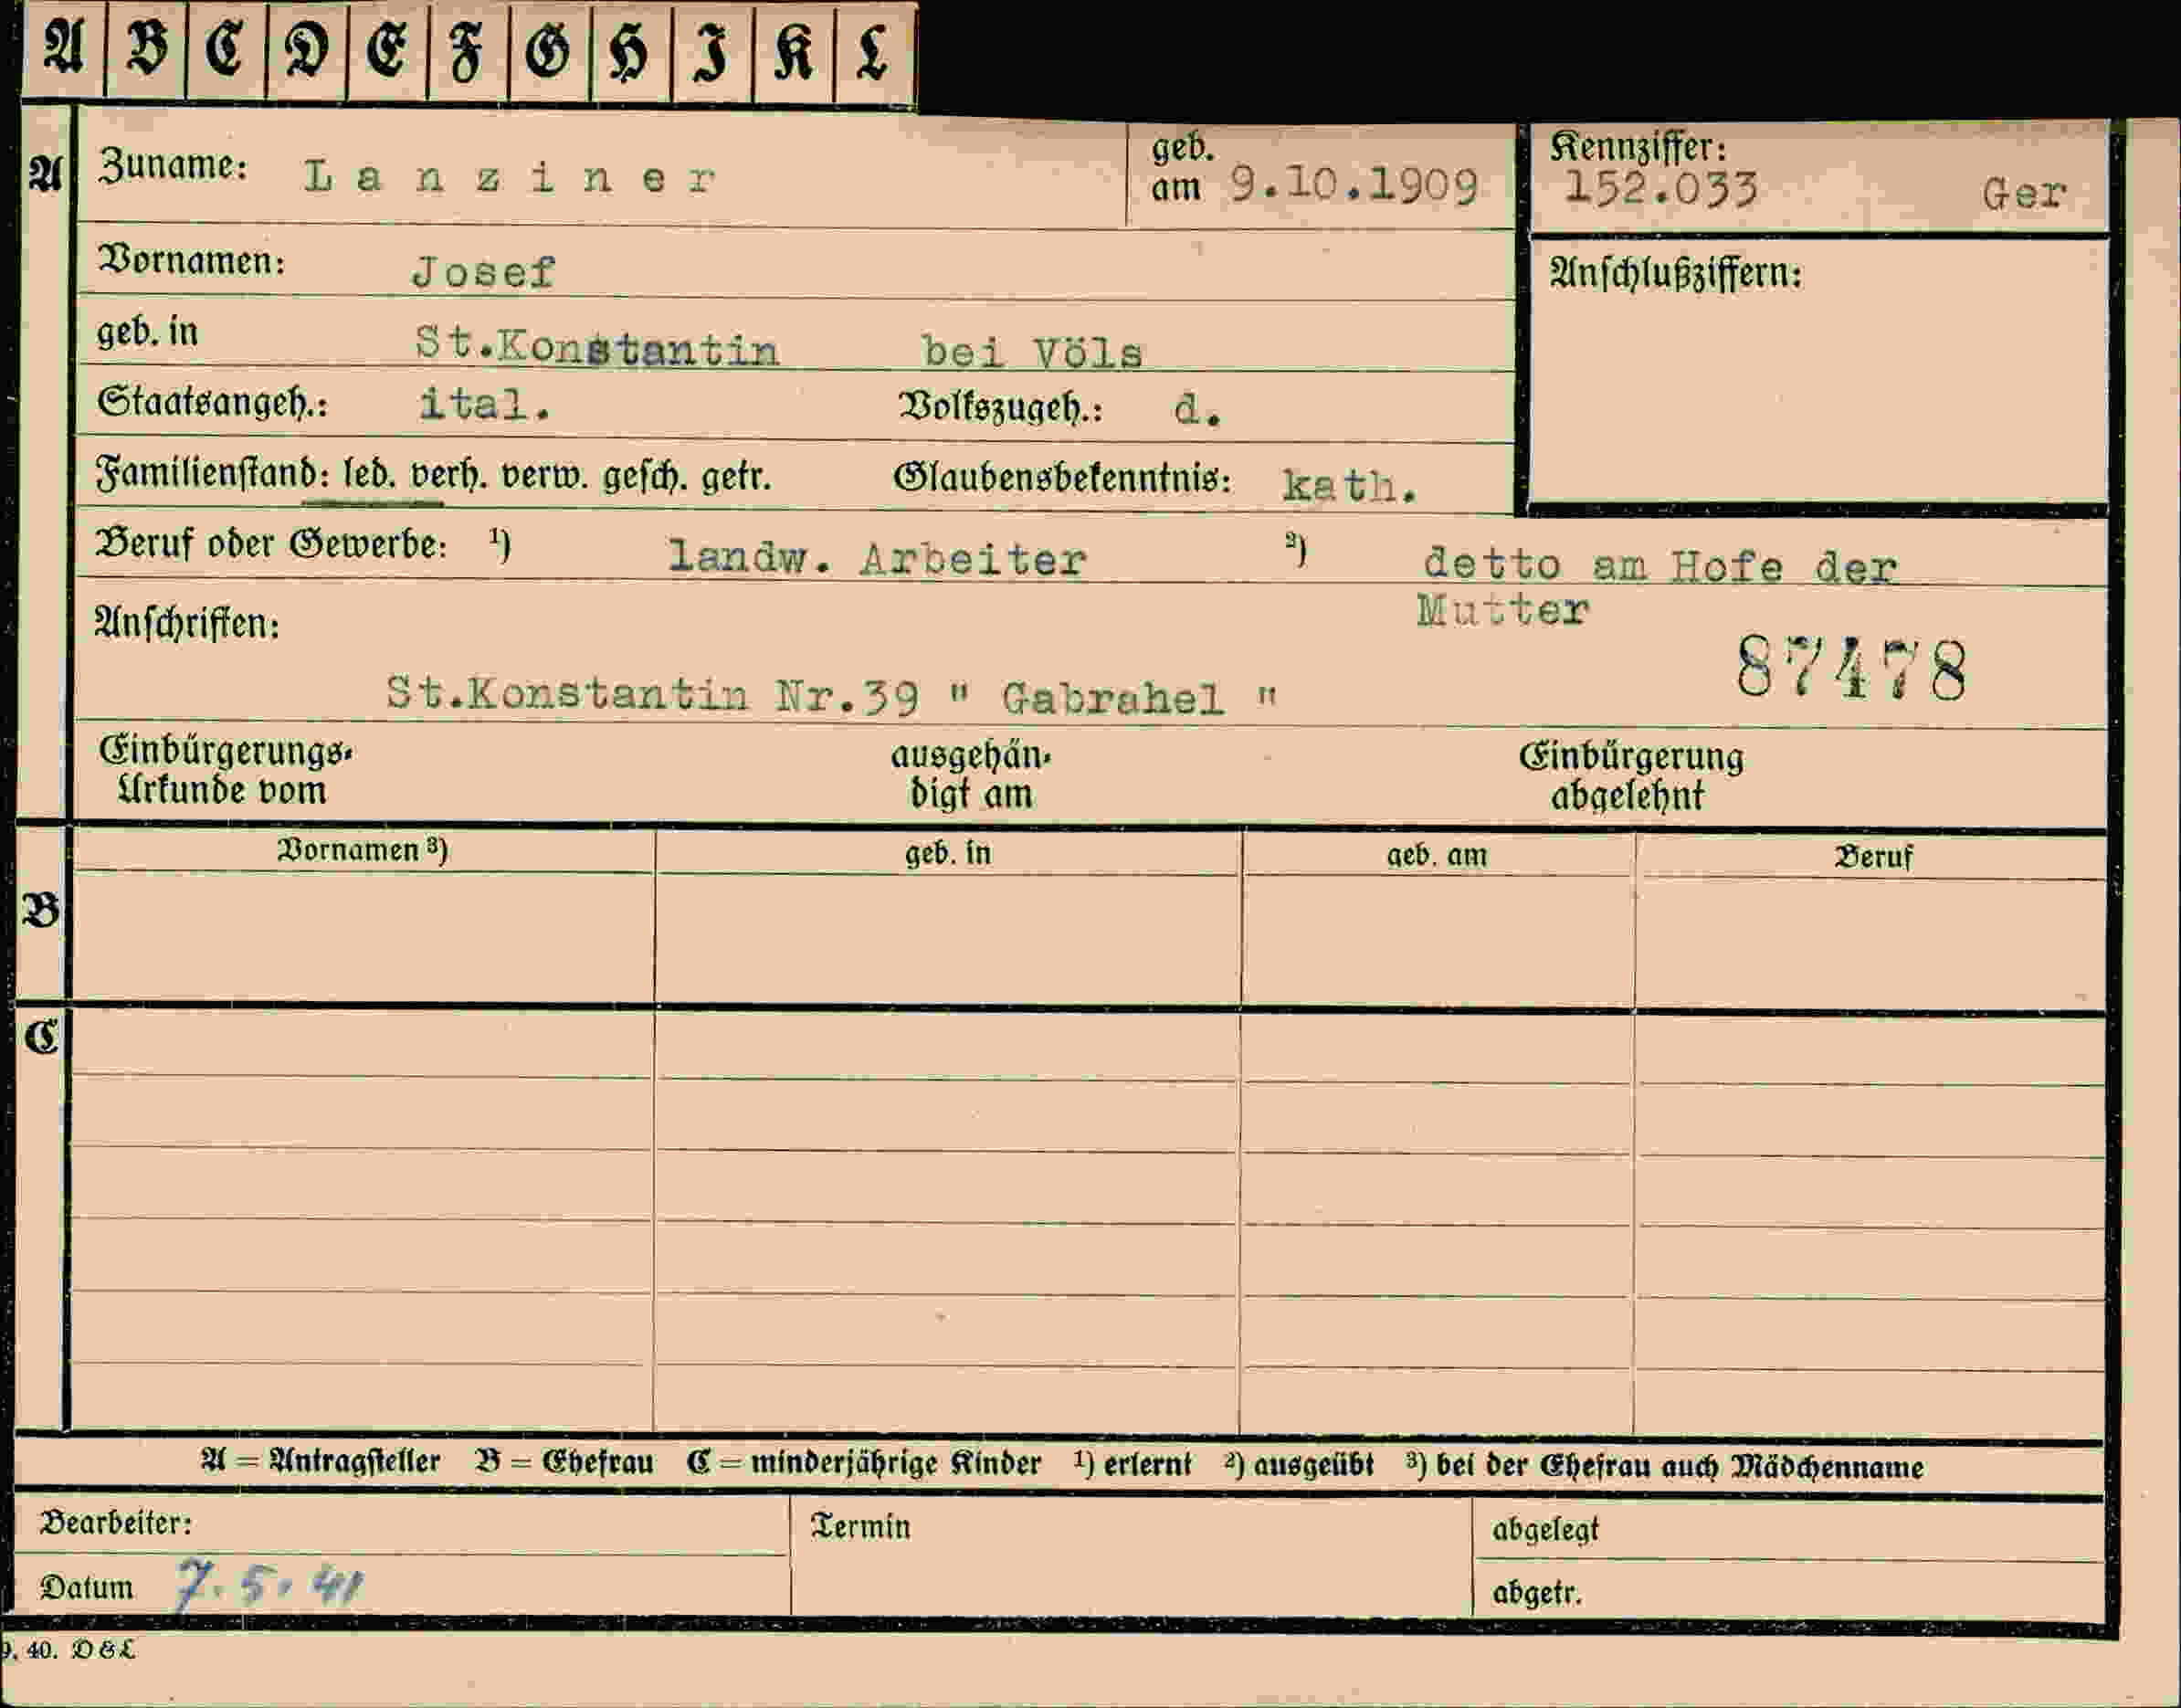 A B C D E F G H I K L
A Zuname: Lanziner geb. am 9.10.1909 Kennziffer: 152.033 Ger
Vornamen: Josef Anschlußziffern:
geb. in St.Konstantin bei Völs
Staatsangeh.: ital. Volkszugeh.: d.
Familienstand: led. verh. verw. gesch. getr. Glaubensbekenntnis: kath.
Beruf oder Gewerbe: ¹) landw. Arbeiter ²) detto am Hofe der
Mutter
Anschriften:
87478
St.Konstantin Nr.39 " Gabrahel "
Einbürgerungs- ausgehän- Einbürgerung
Urkunde vom digt am abgelehnt
Vornamen ³) geb. in geb. am Beruf
B
C
A = Antragsteller B = Ehefrau C = minderjährige Kinder ¹) erlernt ²) ausgeübt ³) bei der Ehefrau auch Mädchenname
Bearbeiter: Termin abgelegt
Datum 7.5.41 abgetr.
9. 40. D & L